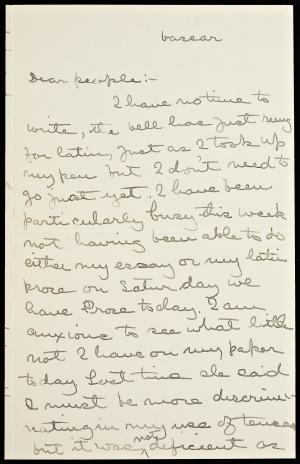 Vassar
Dear people:-
I have no time to
write, the bell has just rung
for latin, just as I took up
my pen but I don't need to
go just yet. I have been
particularly busy this week
not having been able to do
either my essay or my latin
prose on Saturday we
have Prose today. I am
anxious to see what
not I have on my paper
to day Last time she said
I must be more discrimi-
nating in my use of tenses
but it was not deficient as